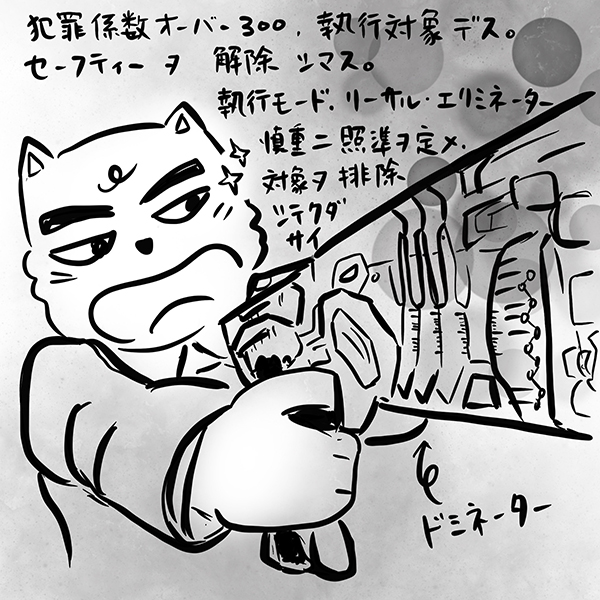 犯罪係数オーバー300、執行対象デス。
セーフティーヲ 解除シマス。
執行モード、リーサル・エリミネーター
慎重ニ照準ヲ定メ、
対象ヲ排除
シテクダ
サイ
ドミネーター